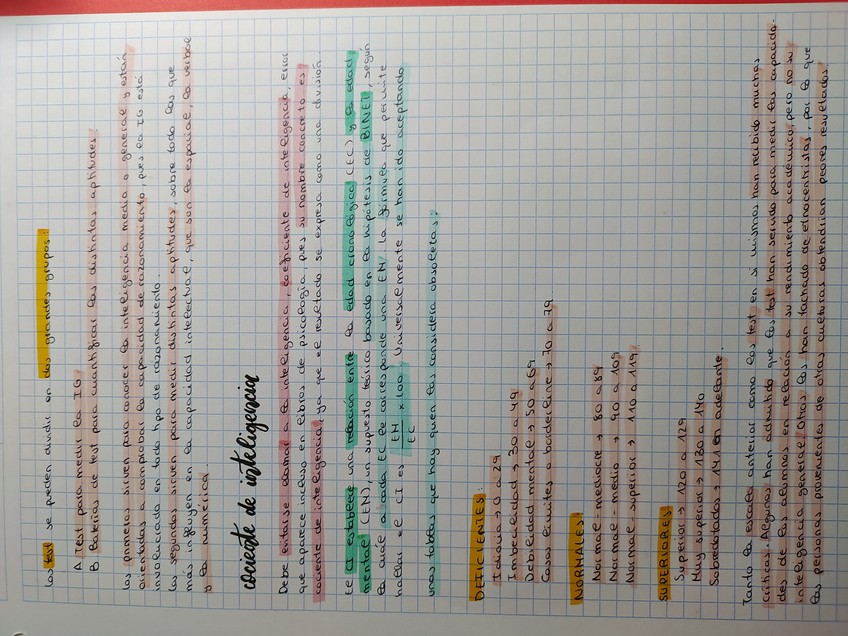 Los test se pueden dividir en dos grandes grupos:
A. Test para medir la IG.
B. Baterías de test para cuantificar las distintas aptitudes.
Los primeros sirven para conocer la inteligencia media o general y están
orientados a comprobar la capacidad de razonamiento, pues la IG está
involucrada en todo tipo de razonamiento.
Los segundos sirven para medir distintas aptitudes, sobre todo las que
más influyen en la capacidad intelectual, que son la espacial, la verbal
y la numérica.
cociente de inteligencia
Debe evitarse llamar a la inteligencia, coeficiente de inteligencia, error
que aparece incluso en libros de psicología, pues su nombre concreto es
cociente de inteligencia, ya que el resultado se expresa como una división.
El CI establece una relación entre la edad cronológica (EC) y la edad
mental (EM), un supuesto teórico basado en la hipótesis de BINET, según
la cual a cada EC le corresponde una EM. La fórmula que permite
hallar el CI es EM/EC x 100. Universalmente se han ido aceptando
unas tablas que hay quien las considera obsoletas:
DEFICIENTES:
Idiocia → 0 a 29
Imbecilidad → 30 a 49
Debilidad mental → 50 a 69
Casos límites o borderline → 70 a 79.
NORMALES:
Normal-mediocre → 80 a 89
Normal-medio → 90 a 109
Normal-superior → 110 a 119
SUPERIORES
Superior → 120 a 129
Muy superior → 130 a 140
Sobredotados → 141 en adelante.
Tanto la escala anterior como los test en sí mismos han recibido muchas
críticas. Algunos han admitido que los test han servido para medir las capacida-
des de los alumnos en relación a su rendimiento académico, pero no su
inteligencia general. Otros los han tachado de etnocentristas, por lo que
las personas provenientes de otras culturas obtendrían peores resultados.